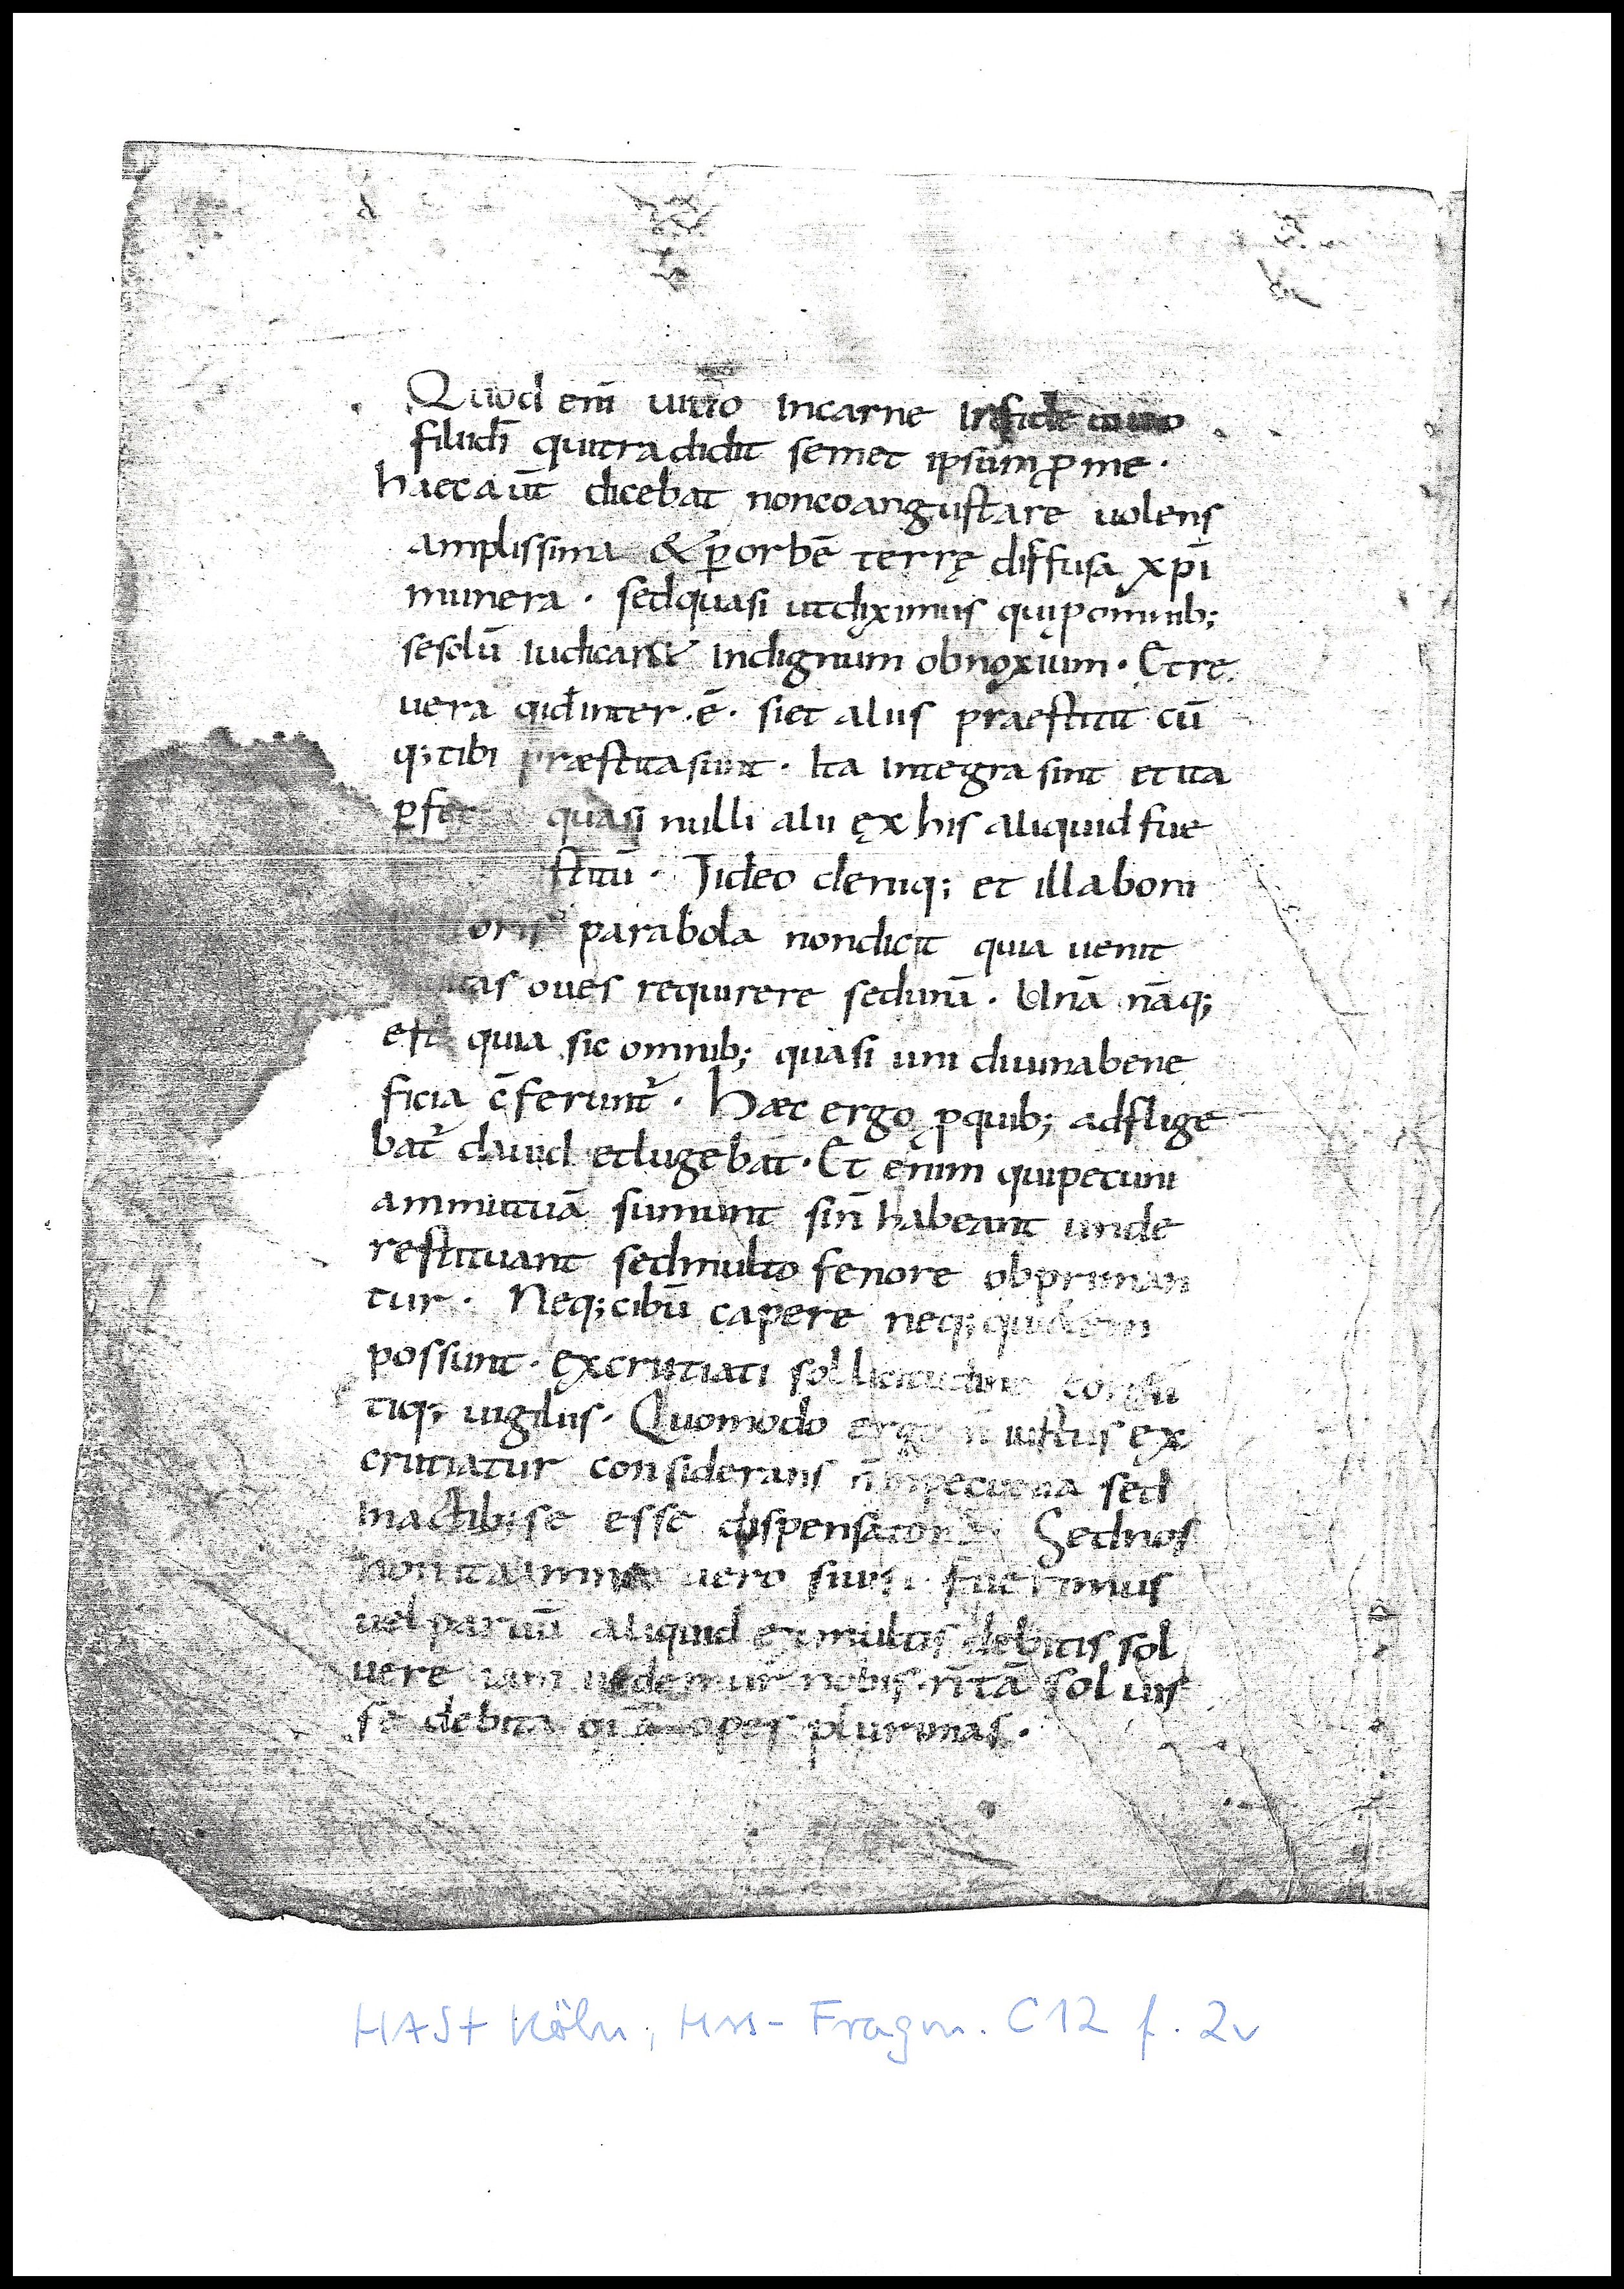 Quod enī uiuo incarne infide uiuo
filiidī quitradidit semet ipsum ꝓme·
haecaūt dicebat noncoangustare uolens
amplissima & ꝑorbē terrę diffusa xp̄i
munera · sedquasi utdiximus qui ꝓomnib;
sesolū iudicaret indignum obnoxium · Et re
uera qid inter · ē · siet aliis praestitit cū
q; tibi praestita sunt · Ita integra sint et ita
ꝑfec quasi nulli alii ex his aliquid fue
stitū · Jideo deniq; et illa boni
oris parabola nondicit quia uenit
tas oues requirere sedunā · Unā nāq;
est quia sic omnib; quasi uni diuinabene
ficia c̄ferunt̄ · Haec ergo ꝓquib; adflige
bat̄ dauid etlugebat · Et enim quipecuni
ammutuā sumunt sin̄ habeant unde
restituant sedmulto fenore obpriman
tur · Neq; cibū capere neq; quidem
possunt · excrutiati sollicitudine consū
tiq; uigiliis · Quomodo ergo n̄ iustus ex
crutiatur considerans n̄ inpecunia sed
inactib; se esse dispensatore Sednos
non ita immo uero siuel fuerimus
uel paruū aliquid ex multis debitis sol
uere iam uidemur nobis · n̄tā soluis
se debita opes plurimas ·
HASt Köln, Hss-Fragm. C12 f. 2v